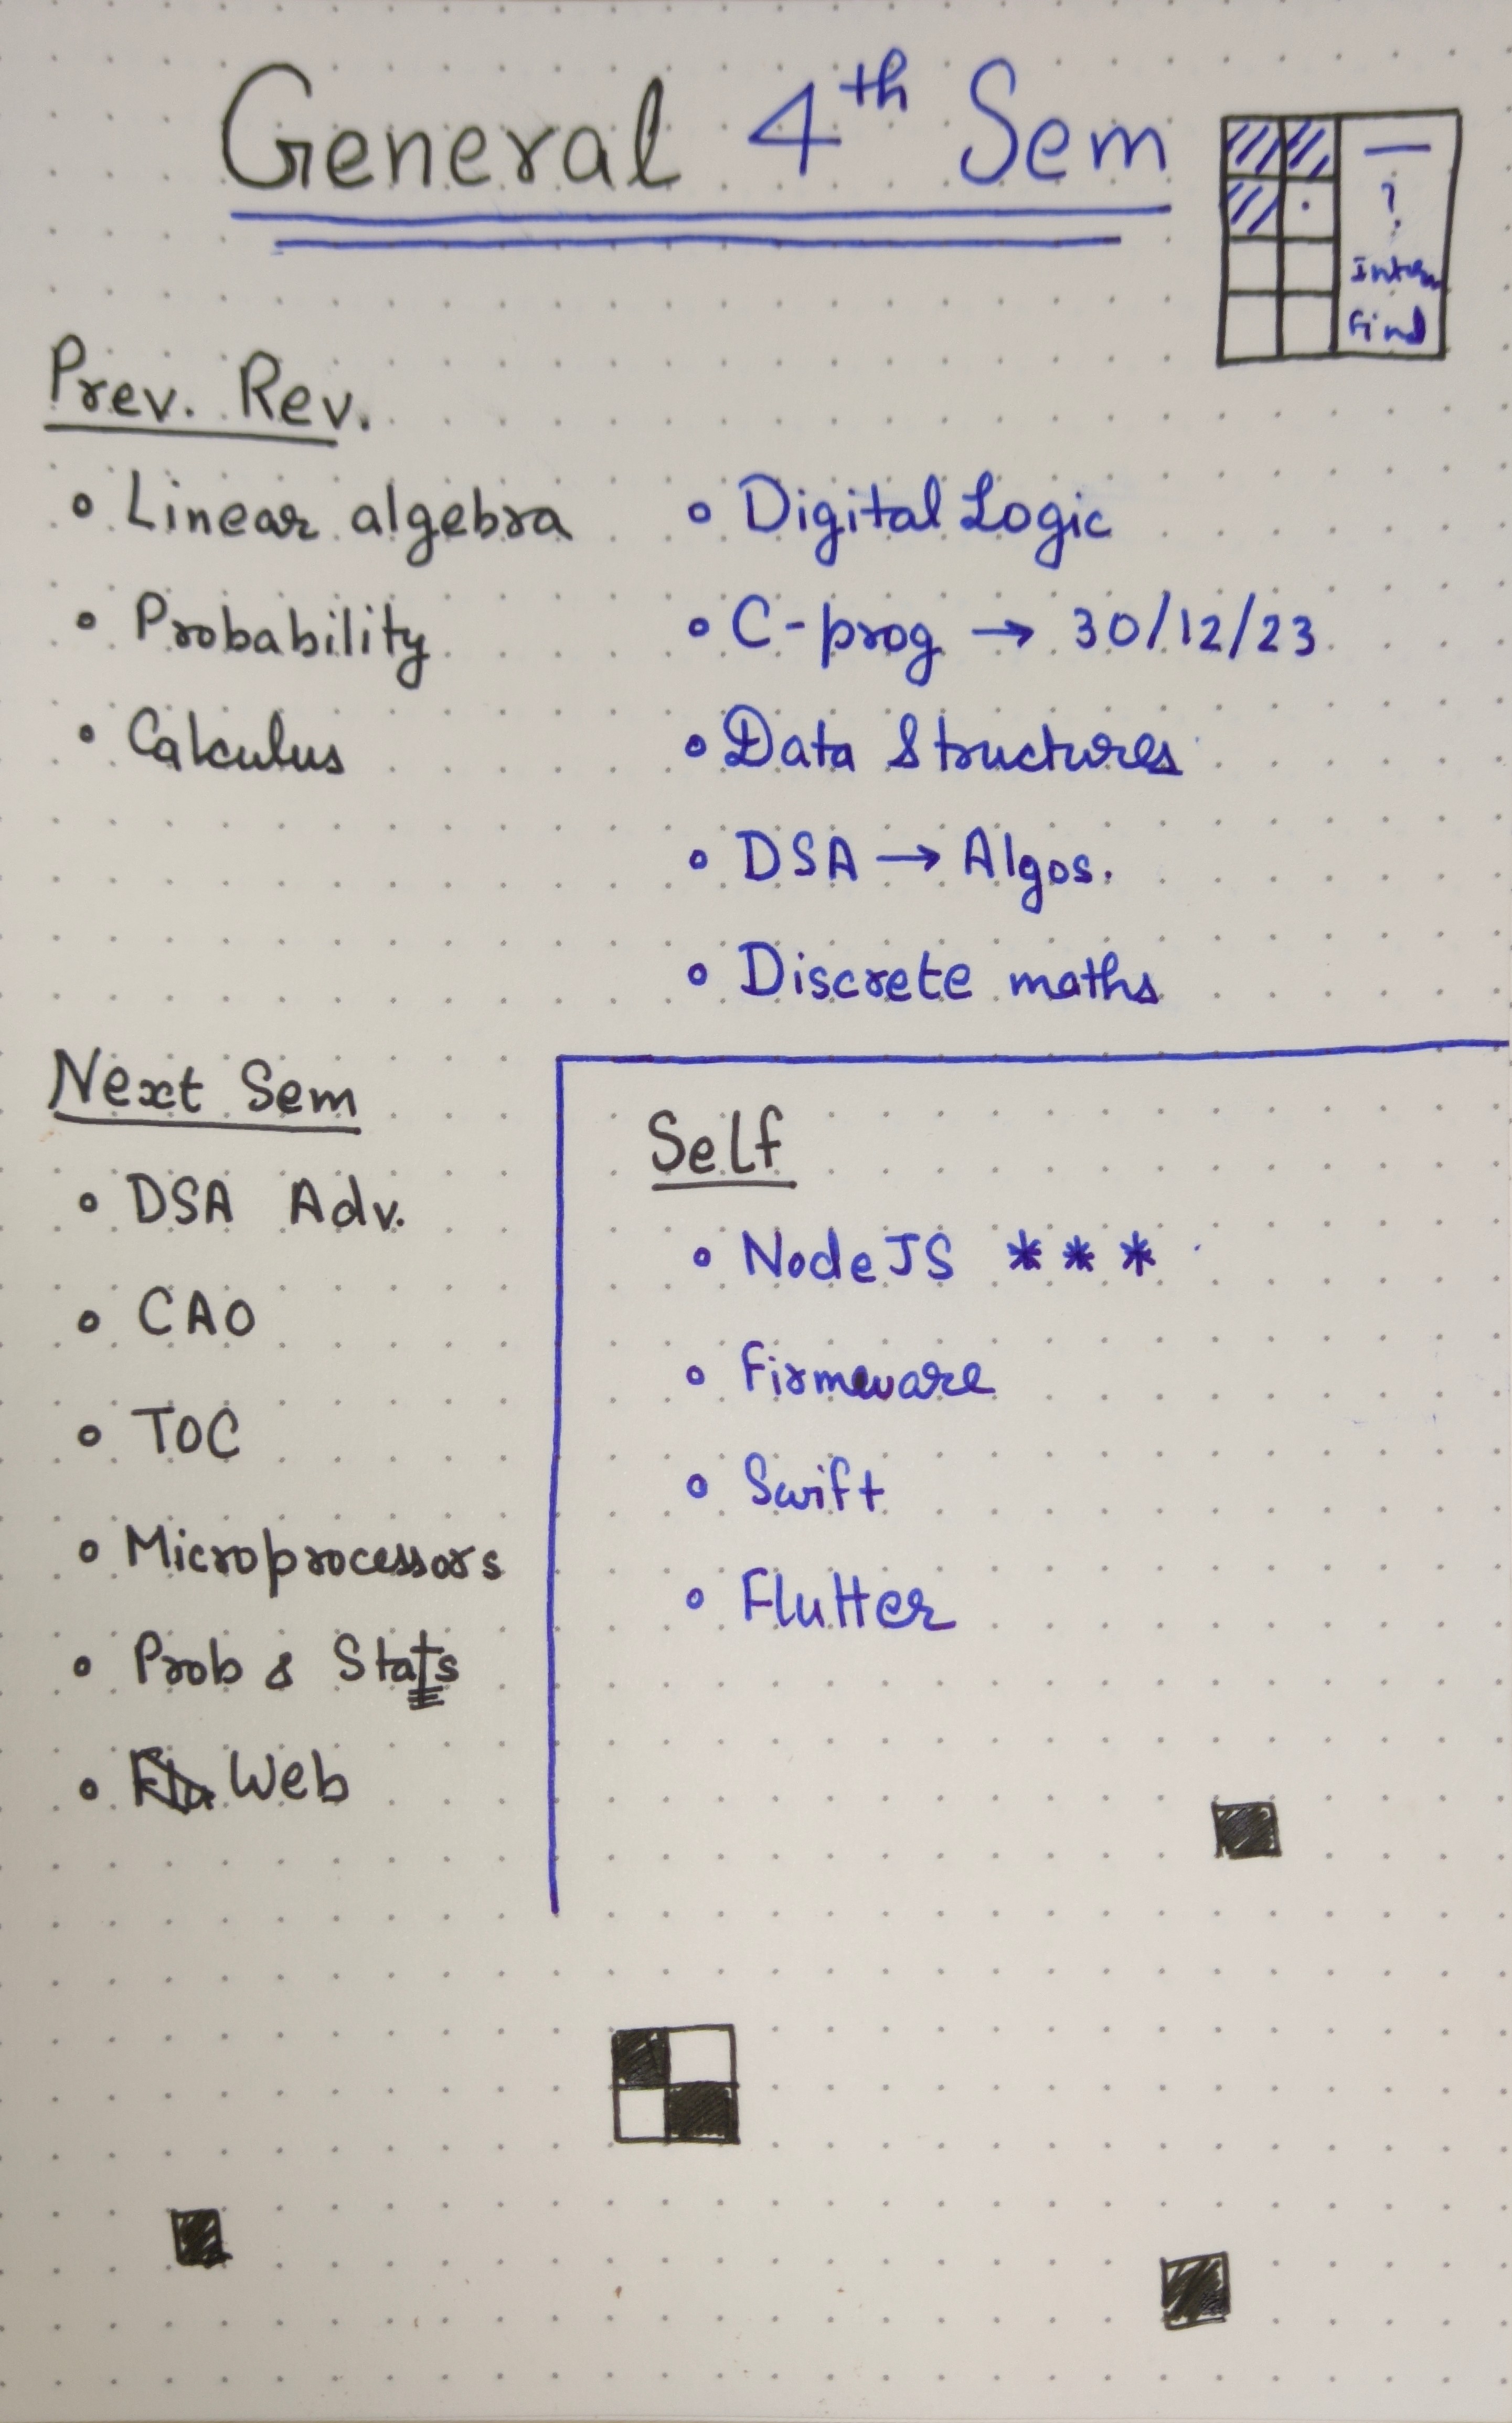 General 4th Sem
—
?
Intern
Find
Prev. Rev.
Linear algebra
Probability
Calculus
Digital Logic
C-prog → 30/12/23
Data Structures
DSA → Algos.
Discrete maths
Next Sem
DSA Adv.
CAO
TOC
Microprocessors
Prob & Stats
Web
Self
NodeJS ***
Firmware
Swift
Flutter